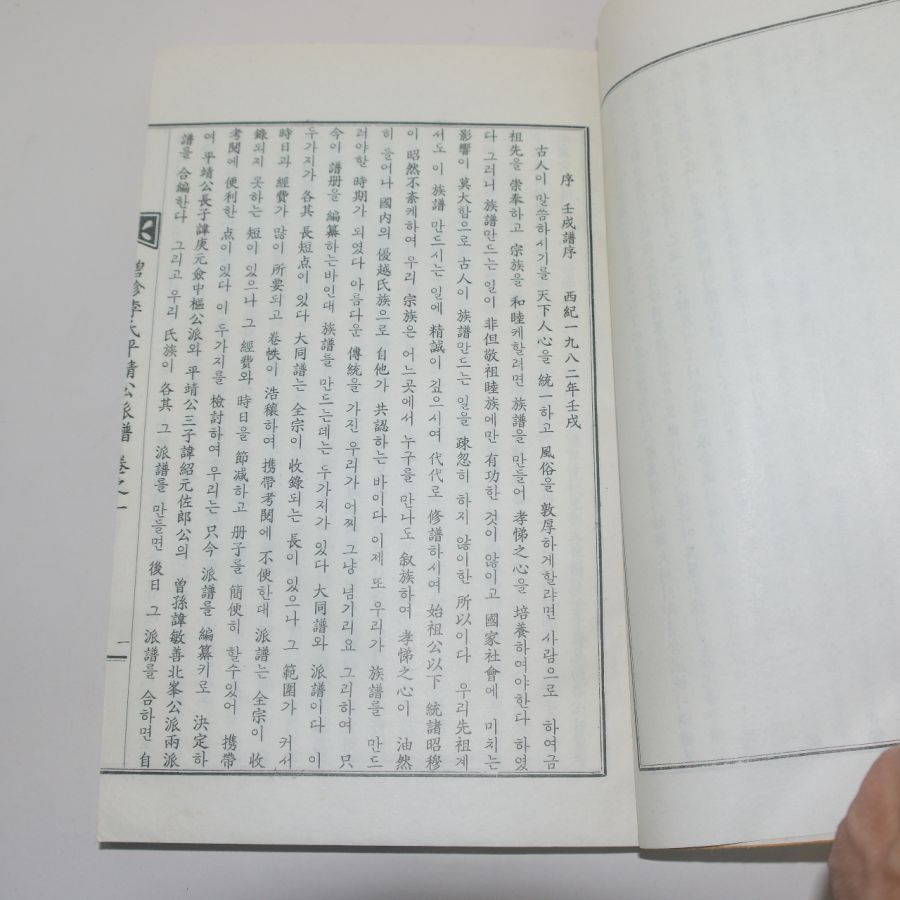 序 壬戌譜序 西紀一九八二年壬戌
古人이 말씀하시기를 天下人心을 統一하고 風俗을 敦厚하게할랴면 사람으로 하여금
祖先을 崇奉하고 宗族을 和睦케할려면 族譜을 만들어 孝悌之心을 培養하여야한다 하였
다 그러니 族譜만드는 일이 非但敬祖睦族에만 有功한 것이 않이고 國家社會에 미치는
影響이 莫大함으로 古人이 族譜만드는 일을 疎忽히 하지 않이한 所以이다 우리先祖게
서도 이 族譜 만드시는 일에 精誠이 깊으시여 代代로 修譜하시여 始祖公以下 統諸昭穆
이 昭然不紊케하여 우리 宗族은 어느곳에서 누구를 만나도 叙族하여 孝悌之心이 油然
히 들어나 國內의 優越氏族으로 自他가 共認하는 바이다 이제 또 우리가 族譜를 만드
려야할 時期가 되였다 아름다운 傳統을 가진 우리가 어찌 그냥 넘기리요 그리하여 只
今이 譜册을 編纂하는바인대 族譜를 만드는데는 두가지가 있다 大同譜와 派譜이다 이
두가지가 各其 長短点이 있다 大同譜는 全宗이 收錄되는 長이 있으나 그 範圍가 커서
時日과 經費가 많이 所要되고 卷帙이 浩穰하여 携帶考閱에 不便한대 派譜는 全宗이 收
錄되지 못하는 短이 있으나 그 經費와 時日을 節减하고 册子를 簡便히 할수있어 携帶
考閱에 便利한 点이 있다 이 두가지를 檢討하여 우리는 只今 派譜를 編纂키로 決定하
여 平靖公長子諱庚元僉中樞公派와 平靖公三子諱紹元佐郎公의 曾孫諱敏善北峯公派兩派
譜를 合編한다 그리고 우리 氏族이 各其 그 派譜를 만들면 後日 그 派譜를 合하면 自
李氏平靖公派譜 卷之一 一